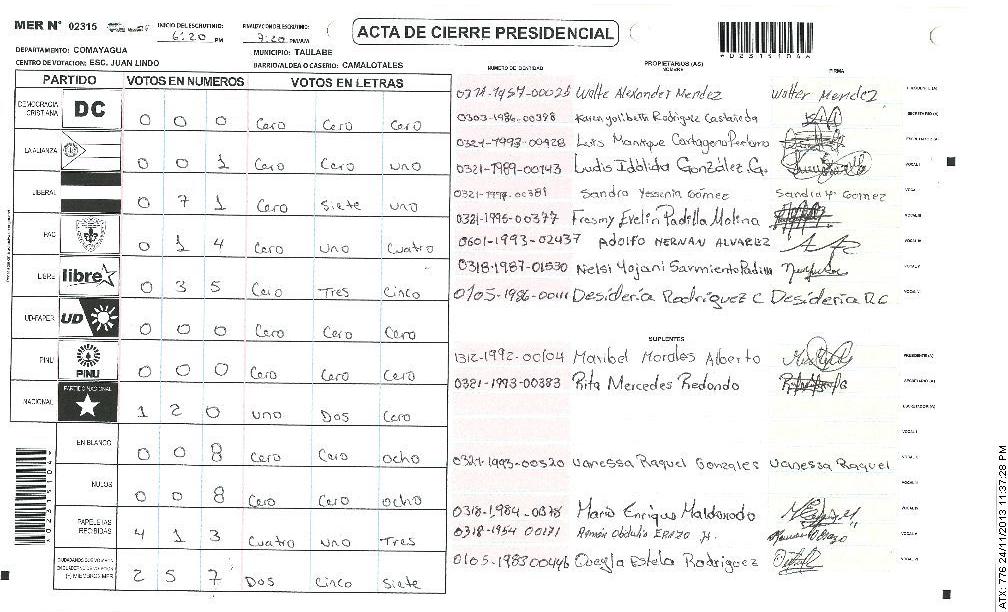 MER N° 02315 INICIO DEL ESCRUTINIO: 6:20 PM FINALIZACION DEL ESCRUTINIO: 9:20 PM/AM
ACTA DE CIERRE PRESIDENCIAL
A02315104A
DEPARTAMENTO: COMAYAGUA MUNICIPIO: TAULABE
CENTRO DE VOTACION: ESC. JUAN LINDO BARRIO/ALDEA O CASERIO: CAMALOTALES
PARTIDO VOTOS EN NUMEROS VOTOS EN LETRAS
DEMOCRACIA CRISTIANA DC 0 0 0 Cero Cero Cero
LA ALIANZA 0 0 1 Cero Cero uno
LIBERAL 0 7 1 Cero Siete uno
PAC 0 1 4 Cero uno Cuatro
LIBRE libre 0 3 5 Cero Tres Cinco
UD-FAPER UD 0 0 0 Cero Cero Cero
PINU PINU 0 0 0 Cero Cero Cero
NACIONAL PARTIDO NACIONAL 1 2 0 uno Dos Cero
EN BLANCO 0 0 8 Cero Cero ocho
NULOS 0 0 8 Cero Cero ocho
PAPELETAS RECIBIDAS 4 1 3 Cuatro uno Tres
(+) MIEMBROS MER 2 5 7 Dos Cinco Siete
NUMERO DE IDENTIDAD PROPIETARIOS (AS) NOMBRE FIRMA
Walte Alexander Mendez Walter Mendez
0303-1986-00398 Karen yolibeth Rodriguez Castañeda
0321-1993-00928 Luis Manrique Cartagena
0321-1989-00743 Ludis Idolida González G.
00381 Sandra Yessenia Gómez Sandra Y Gomez
0321-1995-00377 Fresmy Evelin Padilla Molina
0601-1993-02437 ADOLFO HERNAN ALVAREZ
0318-1987-01530 Nelsi Yojani Sarmiento Padilla
0105-1986-00111 Desideria Rodriguez C Desideria R C
SUPLENTES
1312-1992-00104 Maribel Morales Alberto PRESIDENTE (A)
0321-1993-00383 Rita Mercedes Redondo SECRETARIO (A)
ESCRUTADOR (A)
0321-1993-00520 Vanessa Raquel Gonzales Vanessa Raquel
0318-1984-0378 Mario Enrique Maldonado
0318-1954 00171 Ramón Obdulio ERAZO H.
0105-1983 00446 Estela Rodriguez
A02315104A
ATX: 776 24/11/2013 11:37:28 PM